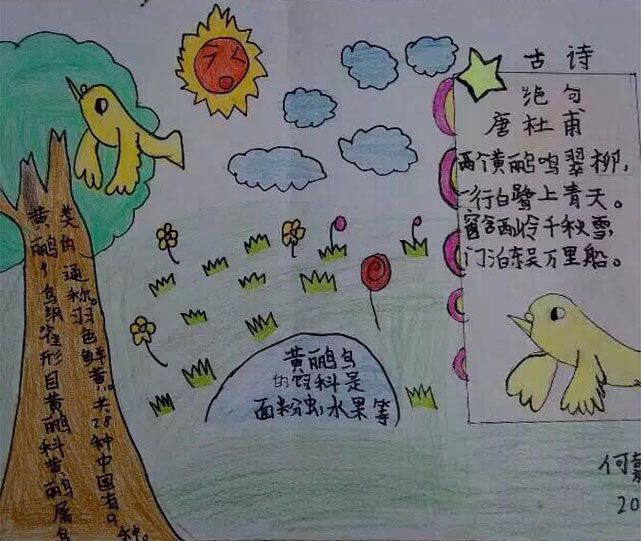 古诗
绝句
唐杜甫
两个黄鹂鸣翠柳，
一行白鹭上青天。
窗含西岭千秋雪，
门泊东吴万里船。
黄鹂鸟
的饲料是
面粉虫水果等
黄鹂，鸟纲雀形目黄鹂科黄鹂属鸟
类的通称。羽色鲜黄。共28种中国有9种。
何
20